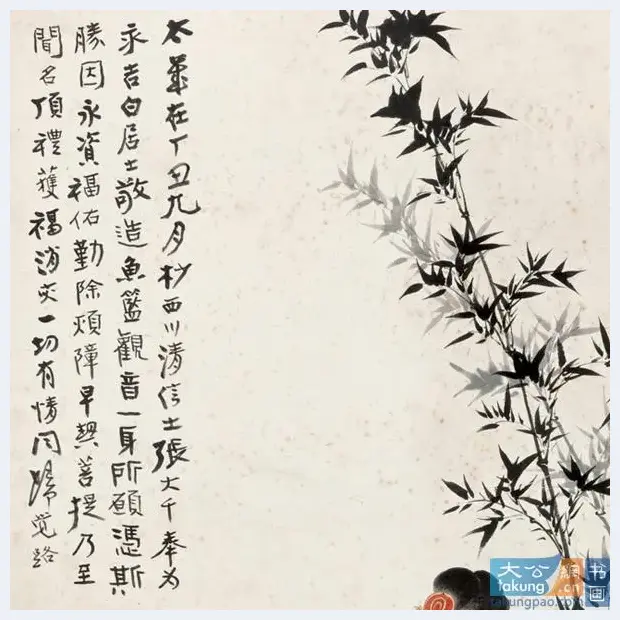 太歲在丁丑九月杪西川清信士張大千奉为
永吉白居士敬造魚籃觀音一身所願憑斯
勝因永資福佑勤除煩障早契菩提乃至
聞名頂禮獲福消灾一切有情同歸覺路
大公網 书画
takung .cn
takungpao.com